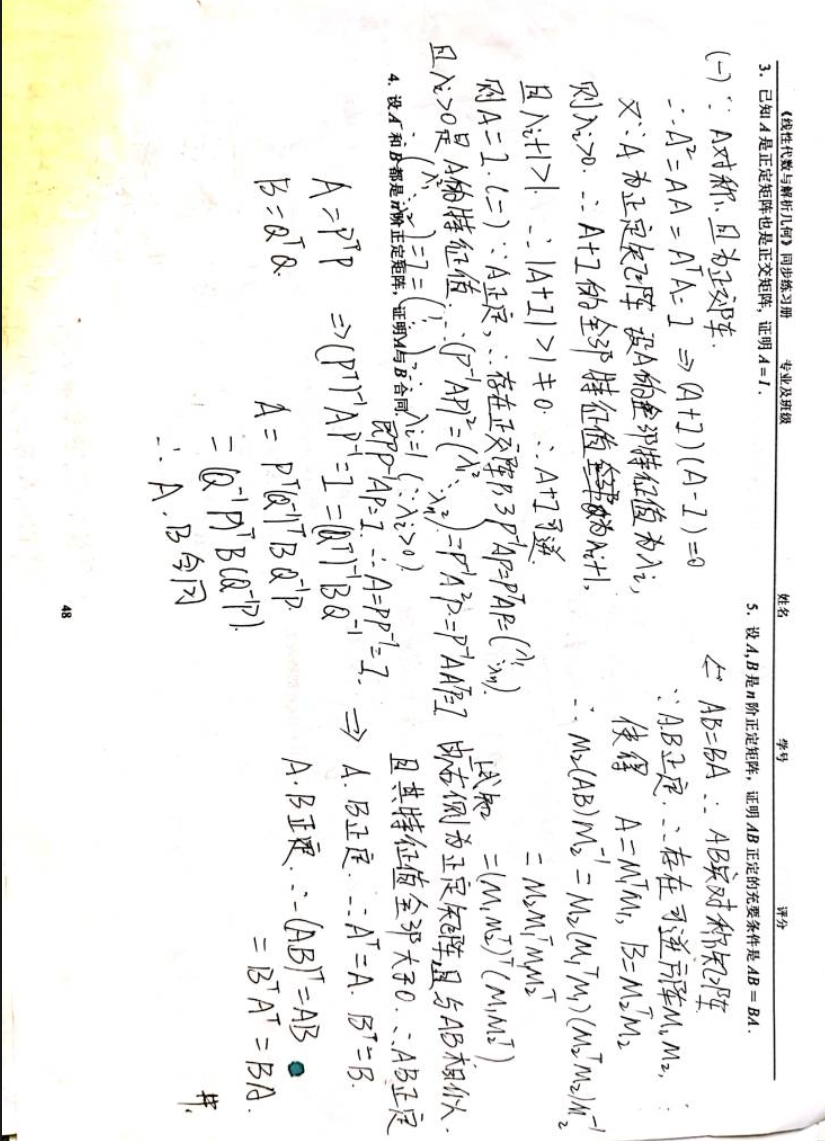 《线性代数与解析几何》同步练习册 专业及班级 姓名 学号 评分
3. 已知 A 是正定矩阵也是正交矩阵，证明 A = I .
(一) ∵ A对称、且为正交阵.
∴ A² = AA = AᵀA = I ⇒ (A+I)(A-I)=0
又∵ A 为正定矩阵 设A的全部特征值为λi,
则λi>0. ∴ A+I 的全部特征值为λi+1,
且λi+1>1. ∴ |A+I|>1≠0. ∴ A+I可逆.
则A=I. (二) ∵ A正定, ∴ 存在正交阵P, ∋ P⁻¹AP=PᵀAP=(λ1 ⋱ λn).
且λi>0是A的特征值. ∴ (P⁻¹AP)²=(λ1² ⋱ λn²)=P⁻¹A²P=P⁻¹AAᵀP=I
∴ (λ1² ⋱ )=I=(1 ⋱ 1) ∴ λi=1 (∵ λi>0).
4. 设 A 和 B 都是 n 阶正定矩阵，证明 A 与 B 合同.
即P⁻¹AP=I. ∴ A=PP⁻¹=I.
A = PᵀP ⇒ (Pᵀ)⁻¹AP⁻¹=I=(Qᵀ)⁻¹BQ⁻¹
B = QᵀQ.
A = Pᵀ(Q⁻¹)ᵀBQ⁻¹P.
= (Q⁻¹P)ᵀB(Q⁻¹P).
∴ A、B合同
5. 设 A,B 是 n 阶正定矩阵，证明 AB 正定的充要条件是 AB = BA .
⇐ AB=BA ∴ AB实对称矩阵
∵ A.B正定. ∴ 存在可逆方阵M₁, M₂,
使得 A=M₁ᵀM₁, B=M₂ᵀM₂
∴ M₂(AB)M₂⁻¹ = M₂(M₁ᵀM₁)(M₂ᵀM₂)M₂⁻¹
= M₂M₁ᵀM₁M₂ᵀ
= (M₁M₂ᵀ)ᵀ(M₁M₂ᵀ)
右侧为正定矩阵,且与AB相似.
且其特征值全部大于0. ∴ AB正定
⇒ A. B正定. ∴ Aᵀ=A. Bᵀ=B.
A.B正定. ∴ (AB)ᵀ=AB
= BᵀAᵀ=BA.
#.
48